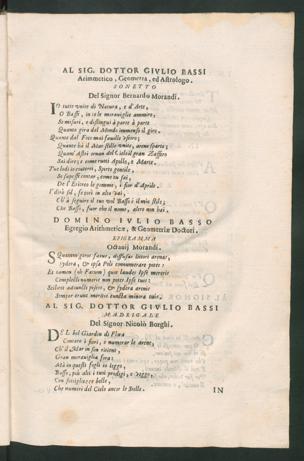 AL SIG. DOTTOR GIVLIO BASSI
Arimmetico, Geometra, ed Astrologo.
SONETTO
Del Signor Bernardo Morandi.
IO tutte unite di Natura, e d'Arte,
O Bassi, in te le meraviglie ammiro;
Se misuri, e distingui à parte à parte
Quanto gira del Mondo immenso il giro.
Quanto dal
Quante hà il Mar stille unite, arene sparte;
Quanti Astri ornan del Ciel il gran Zaffiro
Sai dire; e come rutti Apollo, e Marte.
Tue lodi io conterei, Spirto gentile,
Se sapessi contar, come tu sai,
De l'Eritreo le gemme, i fior d'Aprile.
l'dirò sol, se
Ch'à seguire il tuo vol Bassi è il mio stile;
Che Basso, fuor che il nome, altro non hai.
DOMINO IVLIO BASSO
Egregio Arithmeticæ, & Geometriæ Doctori.
EPIGRAMMA
Octavij Morandi.
SQuammigeros fatur, diffusas littori arenas,
Sydera, & ipsa Polo connumerare potes:
Et tamen (oh Fatum) quas laudes Ipse mereris
Complecti numeris non potes Ipse tuis:
Scilicet adiunctis pisces, & sydera arenis
Semper erunt meritis cuncta minora tuis.
AL SIG. DOTTOR GIVLIO BASSI
MADRIGALE
Del Signor Nicolò Borghi.
DEl bel Giardin di Flora
Contare i fiori, e numerar le arene,
Ch'il Mar in sen ritiene,
Gran meraviglia fora:
Mà in questi fogli io leggo,
Bassi, più alti i tuoi prodigi, e veggo,
Con
Che numeri del Cielo ancor le Stelle.
IN